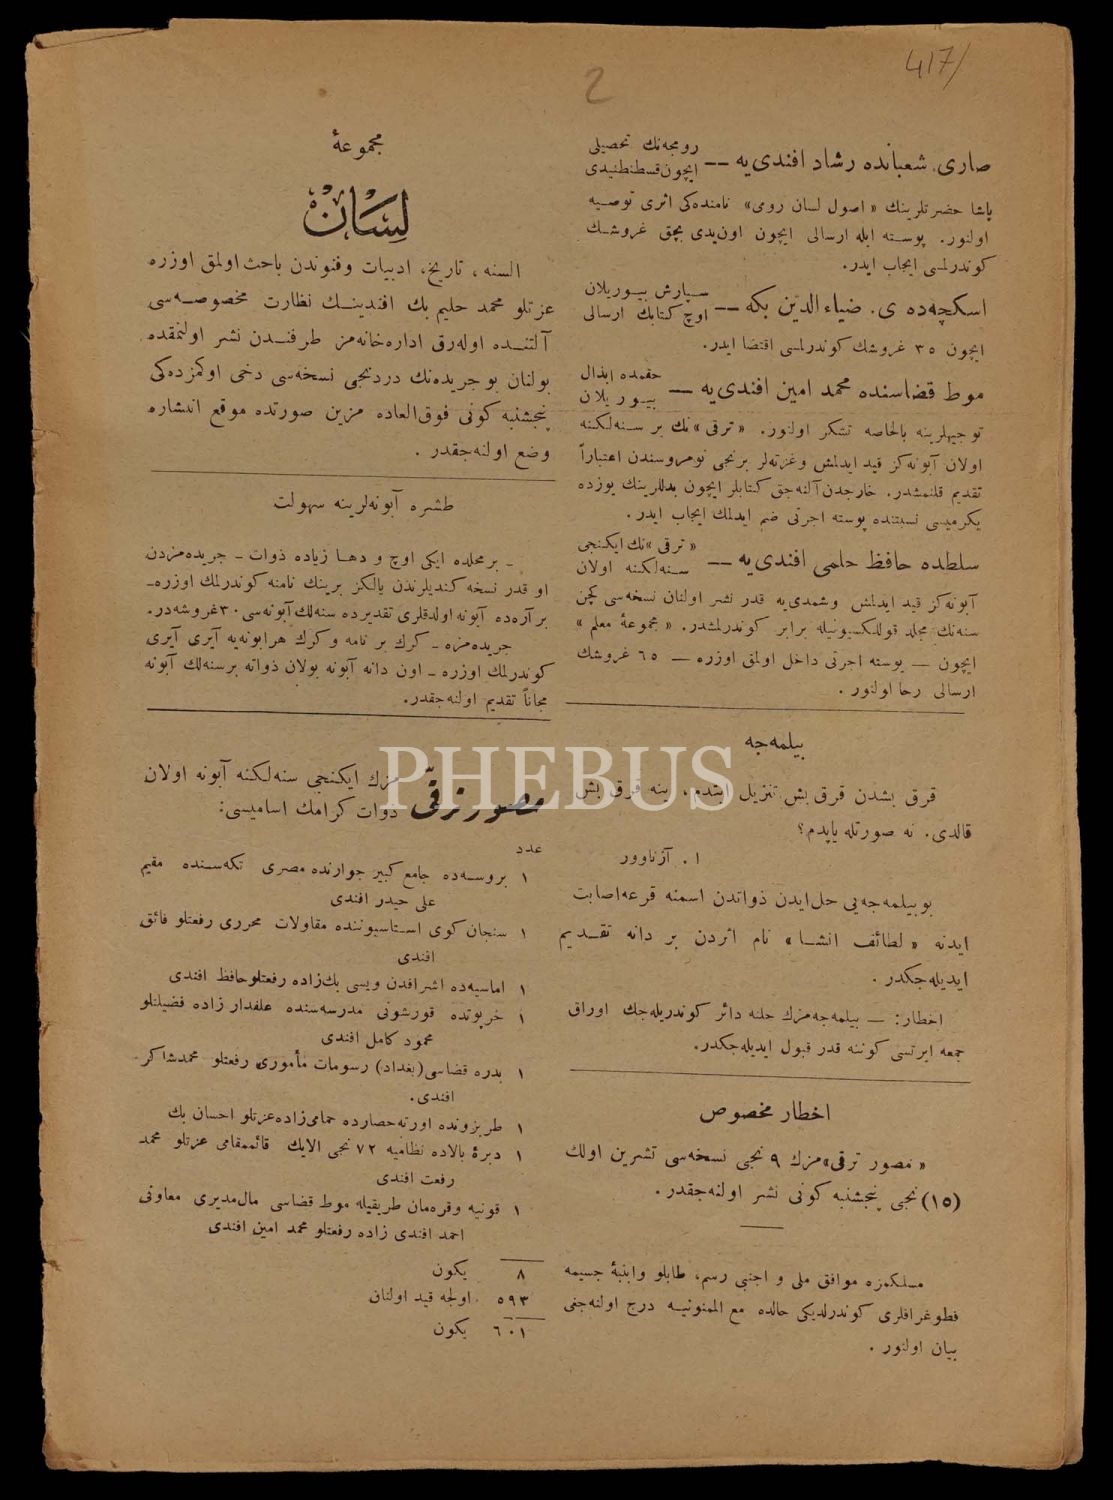 417/
2
صاری شعبانده رشاد افندی‌یه —— رومجه‌نك تحصیلی
ایچون قسطنطنیدی
پاشا حضرتلرینك « اصول لسان رومی » نامنده‌كی اثری توصیه
اولنور. پوسته ایله ارسالی ایچون اون‌یدی بچق غروشك
كوندرلمسی ایجاب ایدر.
اسكچه‌ده ی. ضیاء الدین بكه —— سپارش بیوریلان
اوچ كتابك ارسالی
ایچون ٣٥ غروشك كوندرلمسی اقتضا ایدر.
موط قضاسنده محمد امین افندی‌یه — حقمده ابذال
بیوریلان
توجیهلرینه بالخاصه تشكر اولنور. « ترقی » نك بر سنه‌لكنه
اولان آبونه‌كز قید ایدلمش وغزته‌لر برنجی نومروسندن اعتباراً
تقدیم قلنمشدر. خارجدن آلنه‌جق كتابلر ایچون بدللرینك یوزده
یكرمیسی نسبتنده پوسته اجرتی ضم ایدلمك ایجاب ایدر.
سلطده حافظ حلمی افندی‌یه —— « ترقی » نك ایكنجی
سنه‌لكنه اولان
آبونه‌كز قید ایدلمش وشمدی‌یه قدر نشر اولنان نسخه‌سی كچن
سنه‌نك مجلد قوللكسیونیله برابر كوندرلمشدر. « مجموعهٔ معلم »
ایچون — پوسته اجرتی داخل اولمق اوزره — ٦٥ غروشك
ارسالی رجا اولنور.
بیلمه‌جه
قرق بشدن قرق بش تنزیل ایتدم، ینه قرق بش
قالدی. نه صورتله یاپدم؟
ا. آژناوور
بو بیلمه‌جه‌یی حل ایدن ذواتدن اسمنه قرعه اصابت
ایدنه « لطائف انشا » نام اثردن بر دانه تقدیم
ایدیله‌جكدر.
اخطار: — بیلمه‌جه‌مزك حلنه دائر كوندریله‌جك اوراق
جمعه ایرتسی كوننه قدر قبول ایدیله‌جكدر.
اخطار مخصوص
« مصور ترقی » مزك ٩ نجی نسخه‌سی تشرین اولك
(١٥) نجی پنجشنبه كونی نشر اولنه‌جقدر.
مسلكمزه موافق ملی و اجنبی رسم، طابلو وابنیهٔ جسیمه
فطوغرافلری كوندرلدیكی حالده مع الممنونیه درج اولنه‌جغی
بیان اولنور.
مجموعهٔ
لسان
السنه، تاریخ، ادبیات وفنوندن باحث اولمق اوزره
عزتلو محمد حلیم بك افندینك نظارت مخصوصه‌سی
آلتنده اوله‌رق اداره‌خانه‌مز طرفندن نشر اولنمقده
بولنان بو جریده‌نك دردنجی نسخه‌سی دخی اوكمزده‌كی
پنجشنبه كونی فوق‌العاده مزین صورتده موقع انتشاره
وضع اولنه‌جقدر.
طشره آبونه‌لرینه سهولت
- بر محلده ایكی اوچ و دها زیاده ذوات - جریده‌مزدن
او قدر نسخه كندیلرندن یالكز برینك نامنه كوندرلمك اوزره -
بر آراده آبونه اولدقلری تقدیرده سنه‌لك آبونه‌سی ٣٠ غروشه‌در.
جریده‌مزه - كرك بر نامه و كرك هر ابونه‌یه آیری آیری
كوندرلمك اوزره - اون دانه آبونه بولان ذواته بر سنه‌لك آبونه
مجاناً تقدیم اولنه‌جقدر.
مصور ترقی مزك ایكنجی سنه‌لكنه آبونه اولان
ذوات كرامك اسامیسی:
عدد
١ بروسه‌ده جامع كبیر جوارنده مصری تكه‌سنده مقیم
علی حیدر افندی
١ سنجان كوی استاسیوننده مقاولات محرری رفعتلو فائق
افندی
١ اماسیه‌ده اشرافدن ویسی بك‌زاده رفعتلو حافظ افندی
١ خرپوتده قورشونی مدرسه‌سنده علفدار زاده فضیلتلو
محمود كامل افندی
١ بدره قضاسی (بغداد) رسومات مأموری رفعتلو محمد شاكر
افندی.
١ طربزونده اورته‌حصارده حمامی‌زاده عزتلو احسان بك
١ دبرهٔ بالاده نظامیه ٧٢ نجی الایك قائممقامی عزتلو محمد
رفعت افندی
١ قونیه وقره‌مان طریقیله موط قضاسی مال‌مدیری معاونی
احمد افندی زاده رفعتلو محمد امین افندی
٨ یكون
٥٩٣ اولجه قید اولنان
٦٠١ یكون
PHEBUS